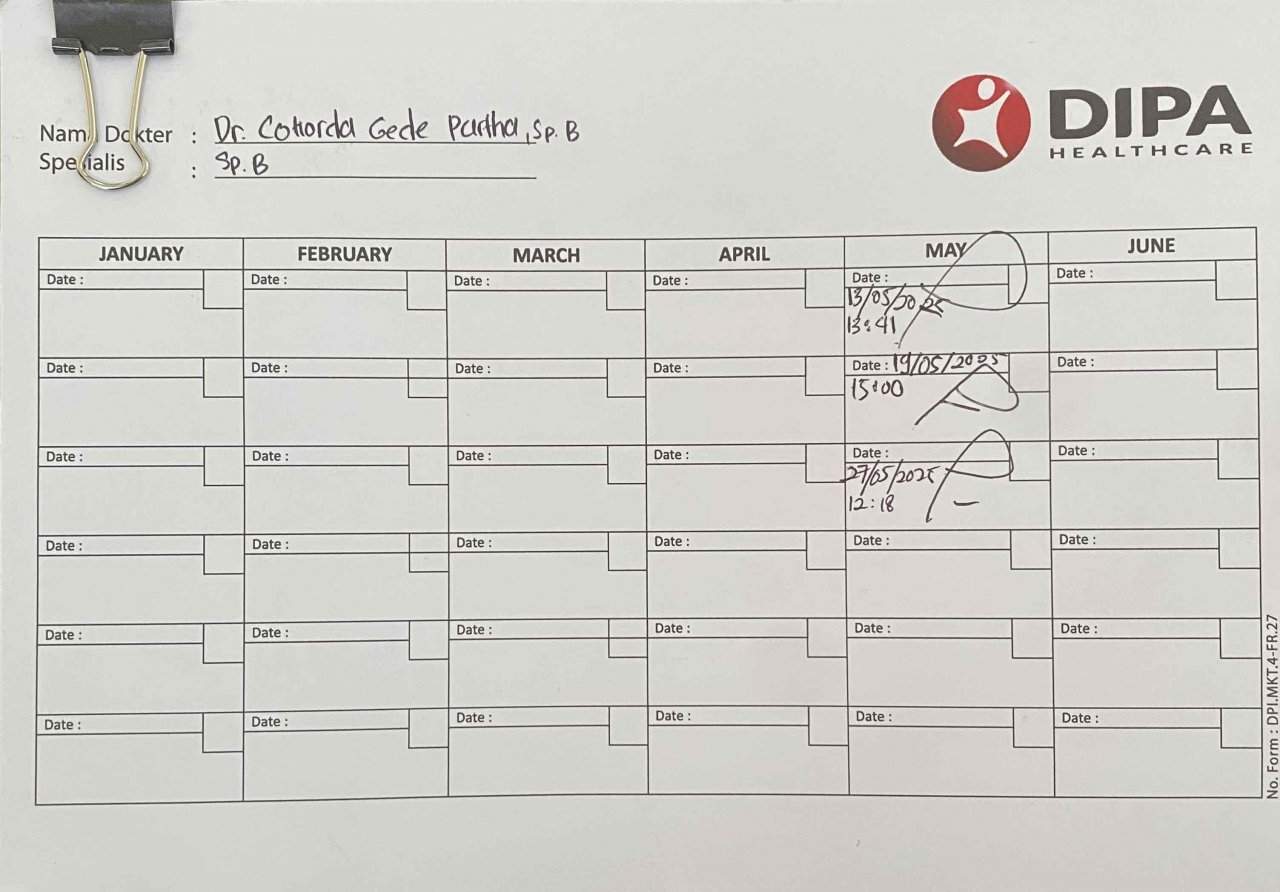 Nama Dokter : Dr. Cokorda Gede Partha, Sp. B
Spesialis : Sp. B
DIPA
HEALTHCARE
JANUARY FEBRUARY MARCH APRIL MAY JUNE
Date : Date : Date : Date : Date : Date :
13/05/2025
13:41
Date : Date : Date : Date : Date : 19/05/2025 Date :
15:00
Date : Date : Date : Date : Date : Date :
27/05/2025
12:18
Date : Date : Date : Date : Date : Date :
Date : Date : Date : Date : Date : Date :
Date : Date : Date : Date : Date : Date :
No. Form : DPI.MKT.4-FR.27